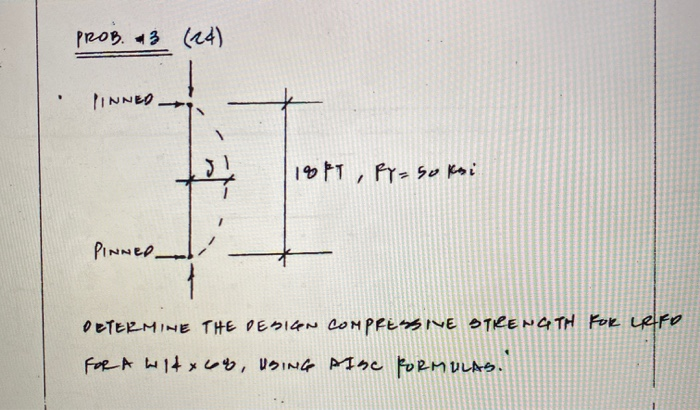 PROB. #3 (24)
PINNED
δ
18 FT, FY = 50 Ksi
PINNED
DETERMINE THE DESIGN COMPRESSIVE STRENGTH FOR LRFD
FOR A W14 x 68, USING AISC FORMULAS.